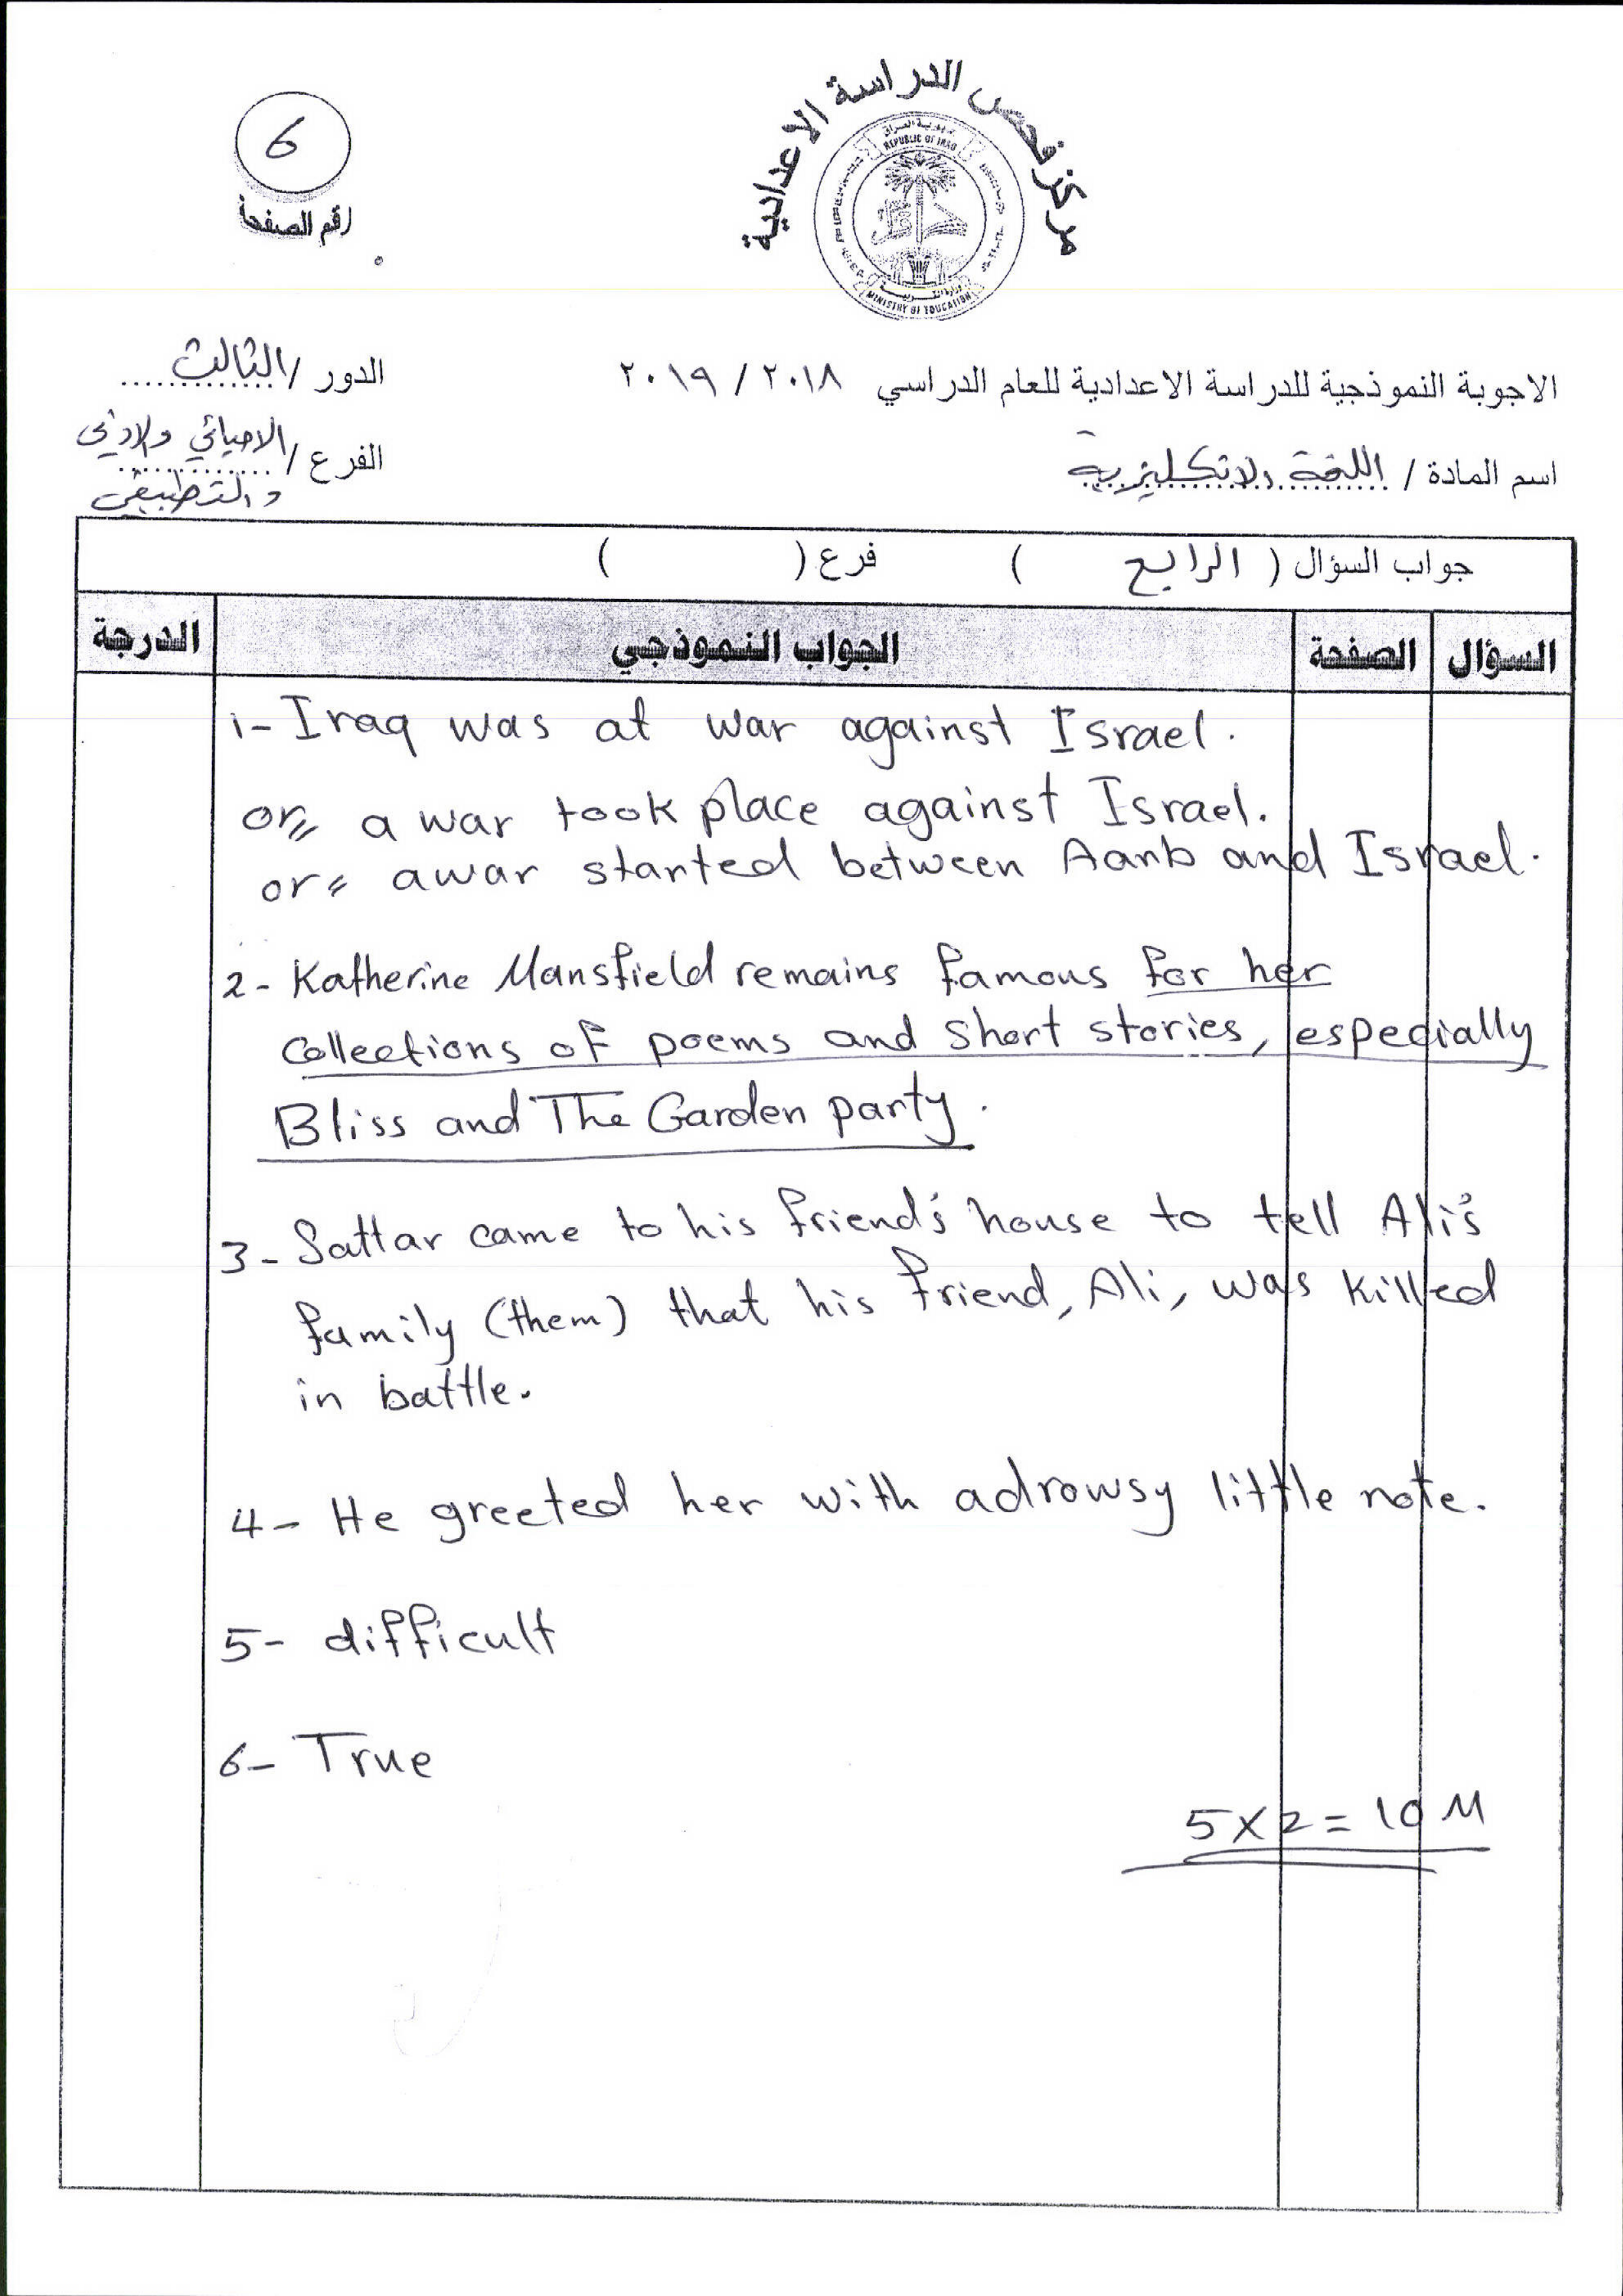 مركز فحص الدراسة الاعدادية
جمهورية العراق
REPUBLIC OF IRAQ
وزارة التربية
MINISTRY OF EDUCATION
6
رقم الصفحة
الاجوبة النموذجية للدراسة الاعدادية للعام الدراسي ٢٠١٨ / ٢٠١٩
الدور / الثالث
اسم المادة / اللغة الانكليزية
الفرع / الاحيائي والادبي
والتطبيقي
جواب السؤال ( الرابع ) فرع ( )
السؤال الصفحة الجواب النموذجي الدرجة
1- Iraq was at war against Israel.
or= a war took place against Israel.
or= a war started between Aarb and Israel.
2- Katherine Mansfield remains famous for her
collections of poems and short stories, especially
Bliss and The Garden party.
3- Sattar came to his friend's house to tell Ali's
family (them) that his friend, Ali, was killed
in battle.
4- He greeted her with a drowsy little note.
5- difficult
6- True
5x2 = 10 M